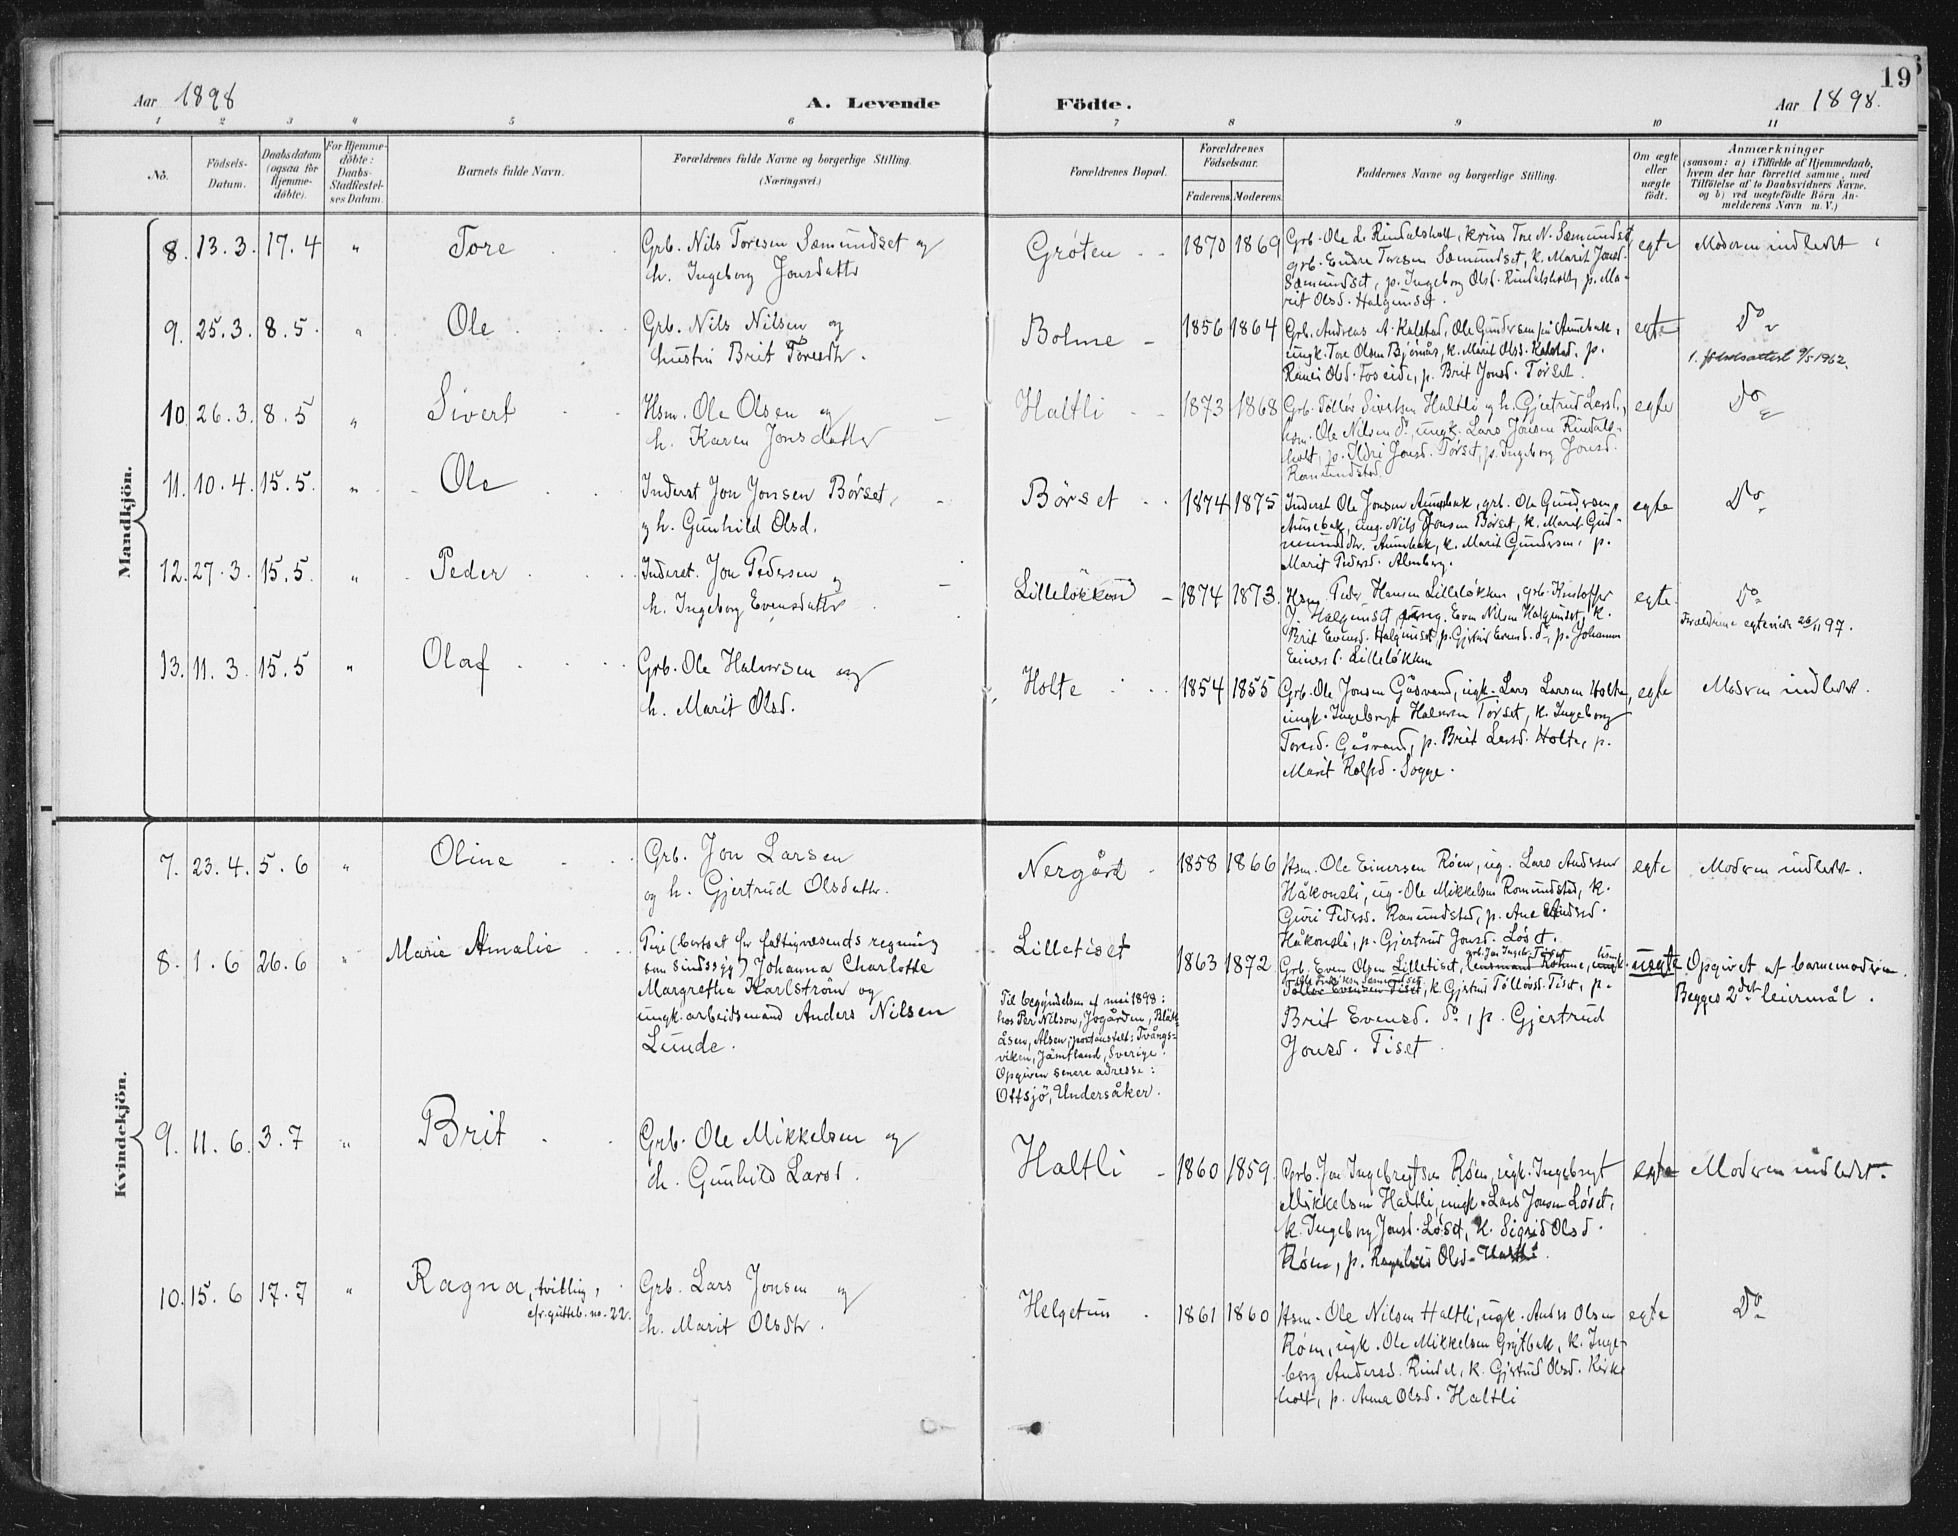 Aar 1898
A. Levende
Födte.
Aar 1898.
19
1 2 3 4 5 6 7 8 9 10 11
No.
Födsels-Datum.
Daabsdatum (ogsaa for Hjemmedöbte).
For Hjemmedöbte: Daabs-Stadfæstelses Datum.
Barnets fulde Navn.
Forældrenes fulde Navne og borgerlige Stilling.
(Næringsvei.)
Forældrenes Bopæl.
Forældrenes Födselsaar.
Faderens. Moderens.
Faddernes Navne og borgerlige Stilling.
Om ægte eller uægte födt.
Anmærkninger
(saasom: a) i Tilfælde af Hjemmedaab,
hvem der har forrettet samme, med
Tilföielse af to Daabsvidners Navne.
og b) ved uægtefödte Börn An-
melderens Navn m. V.)
Mandkjön.
8. 13.3. 17.4 " Tore
Grb. Nils Toresen Sæmundset og
h. Ingeborg Jonsdattr
Grøten
1870 1869
Grb. Ole L. Rindalsholt, Tore N. Sæmundset
grb. Endre Toresen Sæmundset, k. Marit Jonsd.
Sæmundset, p. Ingeborg Olsd. Rindalsholt, p. Ma-
rit Olsd. Halgunset.
egte
Moderen indledet
9. 25.3. 8.5. " Ole
Grb. Nils Nilsen og
hustru Brit Toresdtr.
Bolme
1856 1864
Grb. Andreas A. Kalstad, Ole Gundersen Aunebak,
ungk. Tore Olsen Bjørnås, k. Marit Olsd. Kalstad, p.
Olsd. Foseide, p. Brit Jonsd. Torset.
egte
Do
1. fødselsattest 9/5 1962.
10. 26.3. 8.5 " Sivert
Hsm. Ole Olsen og
h. Karen Jonsdatter
Haltli
1873 1868
Grb. Tølløv Sivertsen Haltli og h. Gjertrud Larsd.,
hsm. Ole Nilsen do, ungk. Lars Jonsen Rindals-
holt, p. Ildri Jonsd. Torset, p. Ingeborg Jonsd.
Romundstad.
egte
Do
11. 10.4. 15.5. " Ole
Inderst Jon Jonsen Børset,
og h. Gunhild Olsd.
Børset
1874 1875
Inderst Ole Jonsen Aunebak, grb. Ole Gundersen
Aunebak, ung. Nils Jonsen Børset, k. Marit Gud-
mundsdtr. Aunebak, k. Marit Gundersen, p.
Marit Pedersd. Almberg.
egte
Do
12. 27.3. 15.5. " Peder
Inderst. Jon Pedersen og
h. Ingeborg Evensdattr
Lilleløkken
1874 1873.
Hsm. Peder Hansen Lilleløkken, grb. Kristoffer
J. Halgunset, ung. Even Nilsen Halgunset, k.
Brit Evensd. Halgunset, p. Gjertrud Evensd. do, p. Johanna
Einersd. Lilleløkken
egte
Do
Forældrene egteviede 26/11 97.
13. 11.3. 15.5 " Olaf
Grb. Ole Halvorsen og
h. Marit Olsd.
Holte
1854 1855
Grb. Ole Jonsen Gåsvand, ugk. Lars Larsen Holte,
ungk. Ingebrygt Halvorsen Torset, k. Ingeborg
Toresd. Gåsvand, p. Brit Larsd. Holte, p.
Marit Rolfsd. Sogge.
egte
Moderen indledet.
Kvindekjön.
7. 23.4. 5.6 " Oline
Grb. Jon Larsen
og h. Gjertrud Olsdattr.
Nergård
1858 1866
Hsm. Ole Einersen Røen, ug. Lars Andersen
Håkonsli, ug. Ole Mikkelsen Romundstad, k.
Guri Pedersd. Romundstad, p. Ane Andersd.
Håkonsli, p. Gjertrud Jonsd. Løset.
egte
Moderen indledet.
8. 1.6 26.6 " Marie Amalie
Pige (bortsat for fattigvæsends regning
som sindssyg) Johanna Charlotte
Margretha Karlström og
ungk. arbeidsmand Anders Nilsen
Lunde.
Lilletiset
Til begyndelsen af mai 1898:
hos Per Nilson, Jogården, Blåk-
åsen, Alsen; postanstalt: Trångs-
viken, Jämtland, Sverige.
Opgiven senere adresse:
Ottsjö, Undersåker.
1863 1872
Grb. Even Olsen Lilletiset, lensmand Bøhme,
Tølløv Evensen Tiset, k. Gjertrud Tølløvsd. Tiset, p.
Brit Evensd. do, p. Gjertrud
Jonsd. Tiset.
uegte
Opgivet af barnemoderen.
Begges 2det leiermål.
9. 11.6. 3.7 " Brit
Grb. Ole Mikkelsen og
h. Gunhild Larsd.
Haltli
1860 1859.
Grb. Jon Ingebrigtsen Røen, ugk. Ingebrygt
Mikkelsen Haltli, ungk. Lars Jonsen Løset,
k. Ingeborg Jonsd. Løset, k. Sigrid Olsd.
Røen, p. Ragnhild Olsd. Haltli.
egte
Moderen indledet.
10. 15.6 17.7 " Ragna, tvilling,
cfr. gutteb. no. 22.
Grb. Lars Jonsen og
h. Marit Olsdtr.
Helgetun
1861 1860
Hsm. Ole Nilsen Haltli, ugk. Anders Olsen
Røen, ugk. Ole Mikkelsen Grytbak, k. Inge-
borg Andersd. Rindal, k. Gjertrud Olsd. Kirke
holt, p. Anne Olsd. Haltli
egte
Do